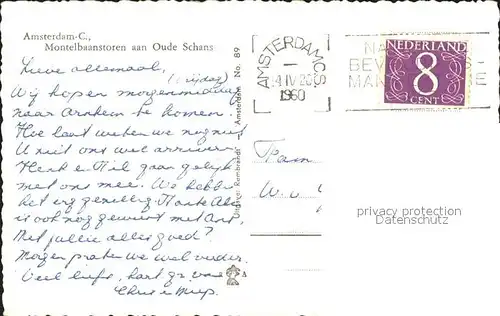 Amsterdam-C.,
Montelbaanstoren aan Oude Schans
Lieve allemaal,
(vrijdag)
Wij hopen morgenmiddag
naar Arnhem te komen.
Hoe laat weten we nog niet
U ziet ons wel arriveren
Henk e. gaan gelijk
met ons mee. We hebben
het erg gezellig. Tante
is ook nog geweest met
Met jullie alles goed?
Morgen praten we wel verder.
Veel liefs, hart. gr. van
Uitgave Rembrandt - Amsterdam No. 89
AMSTERDAM-CS
20
1960
NA
BEV
MAN E
NEDERLAND
8
CENT
Fam
privacy protection
Datenschutz